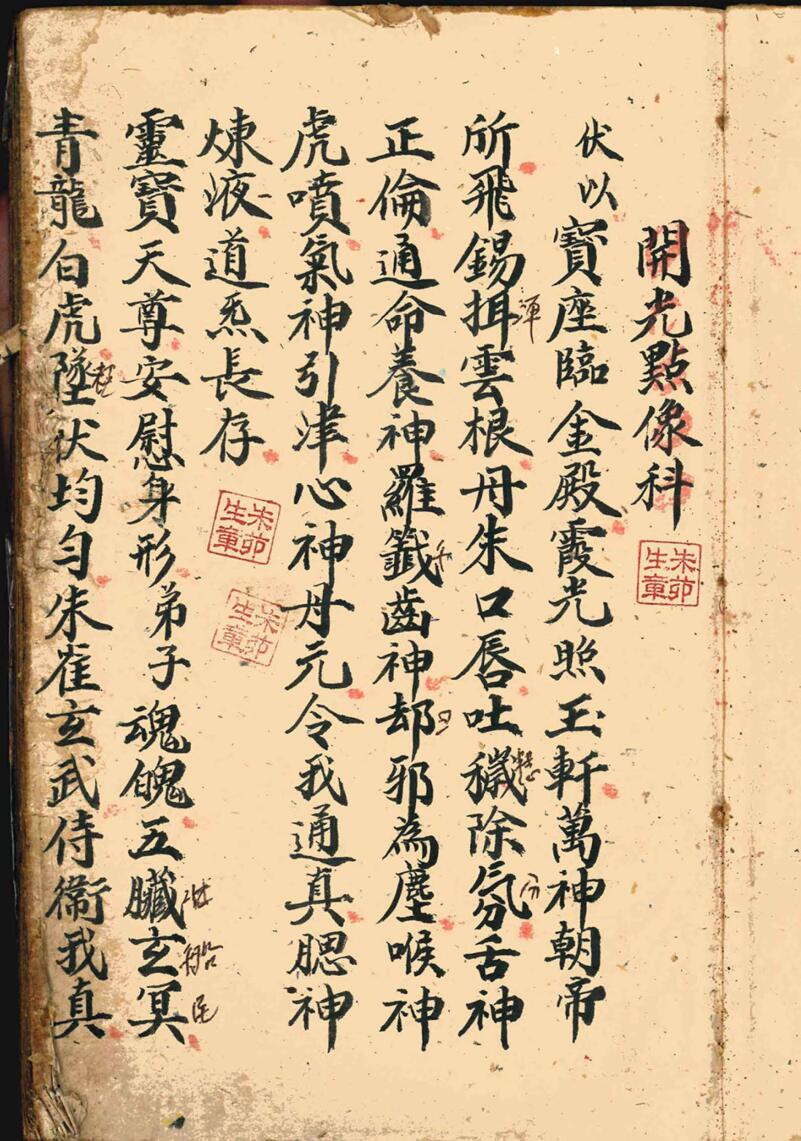 開光點像科
朱茆生章
伏以寳座臨金殿霞光照玉軒萬神朝帝
所飛錫揖雲根丹朱口唇吐穢除氛舌神
正倫通命養神羅籤齒神却邪為塵喉神
虎噴氣神引津心神丹元令我通真腮神
煉液道炁長存
朱茆生章
朱茆生章
靈寳天尊安慰身形弟子魂魄五臟玄冥
青龍白虎墜伏均勻朱雀玄武侍衛我真